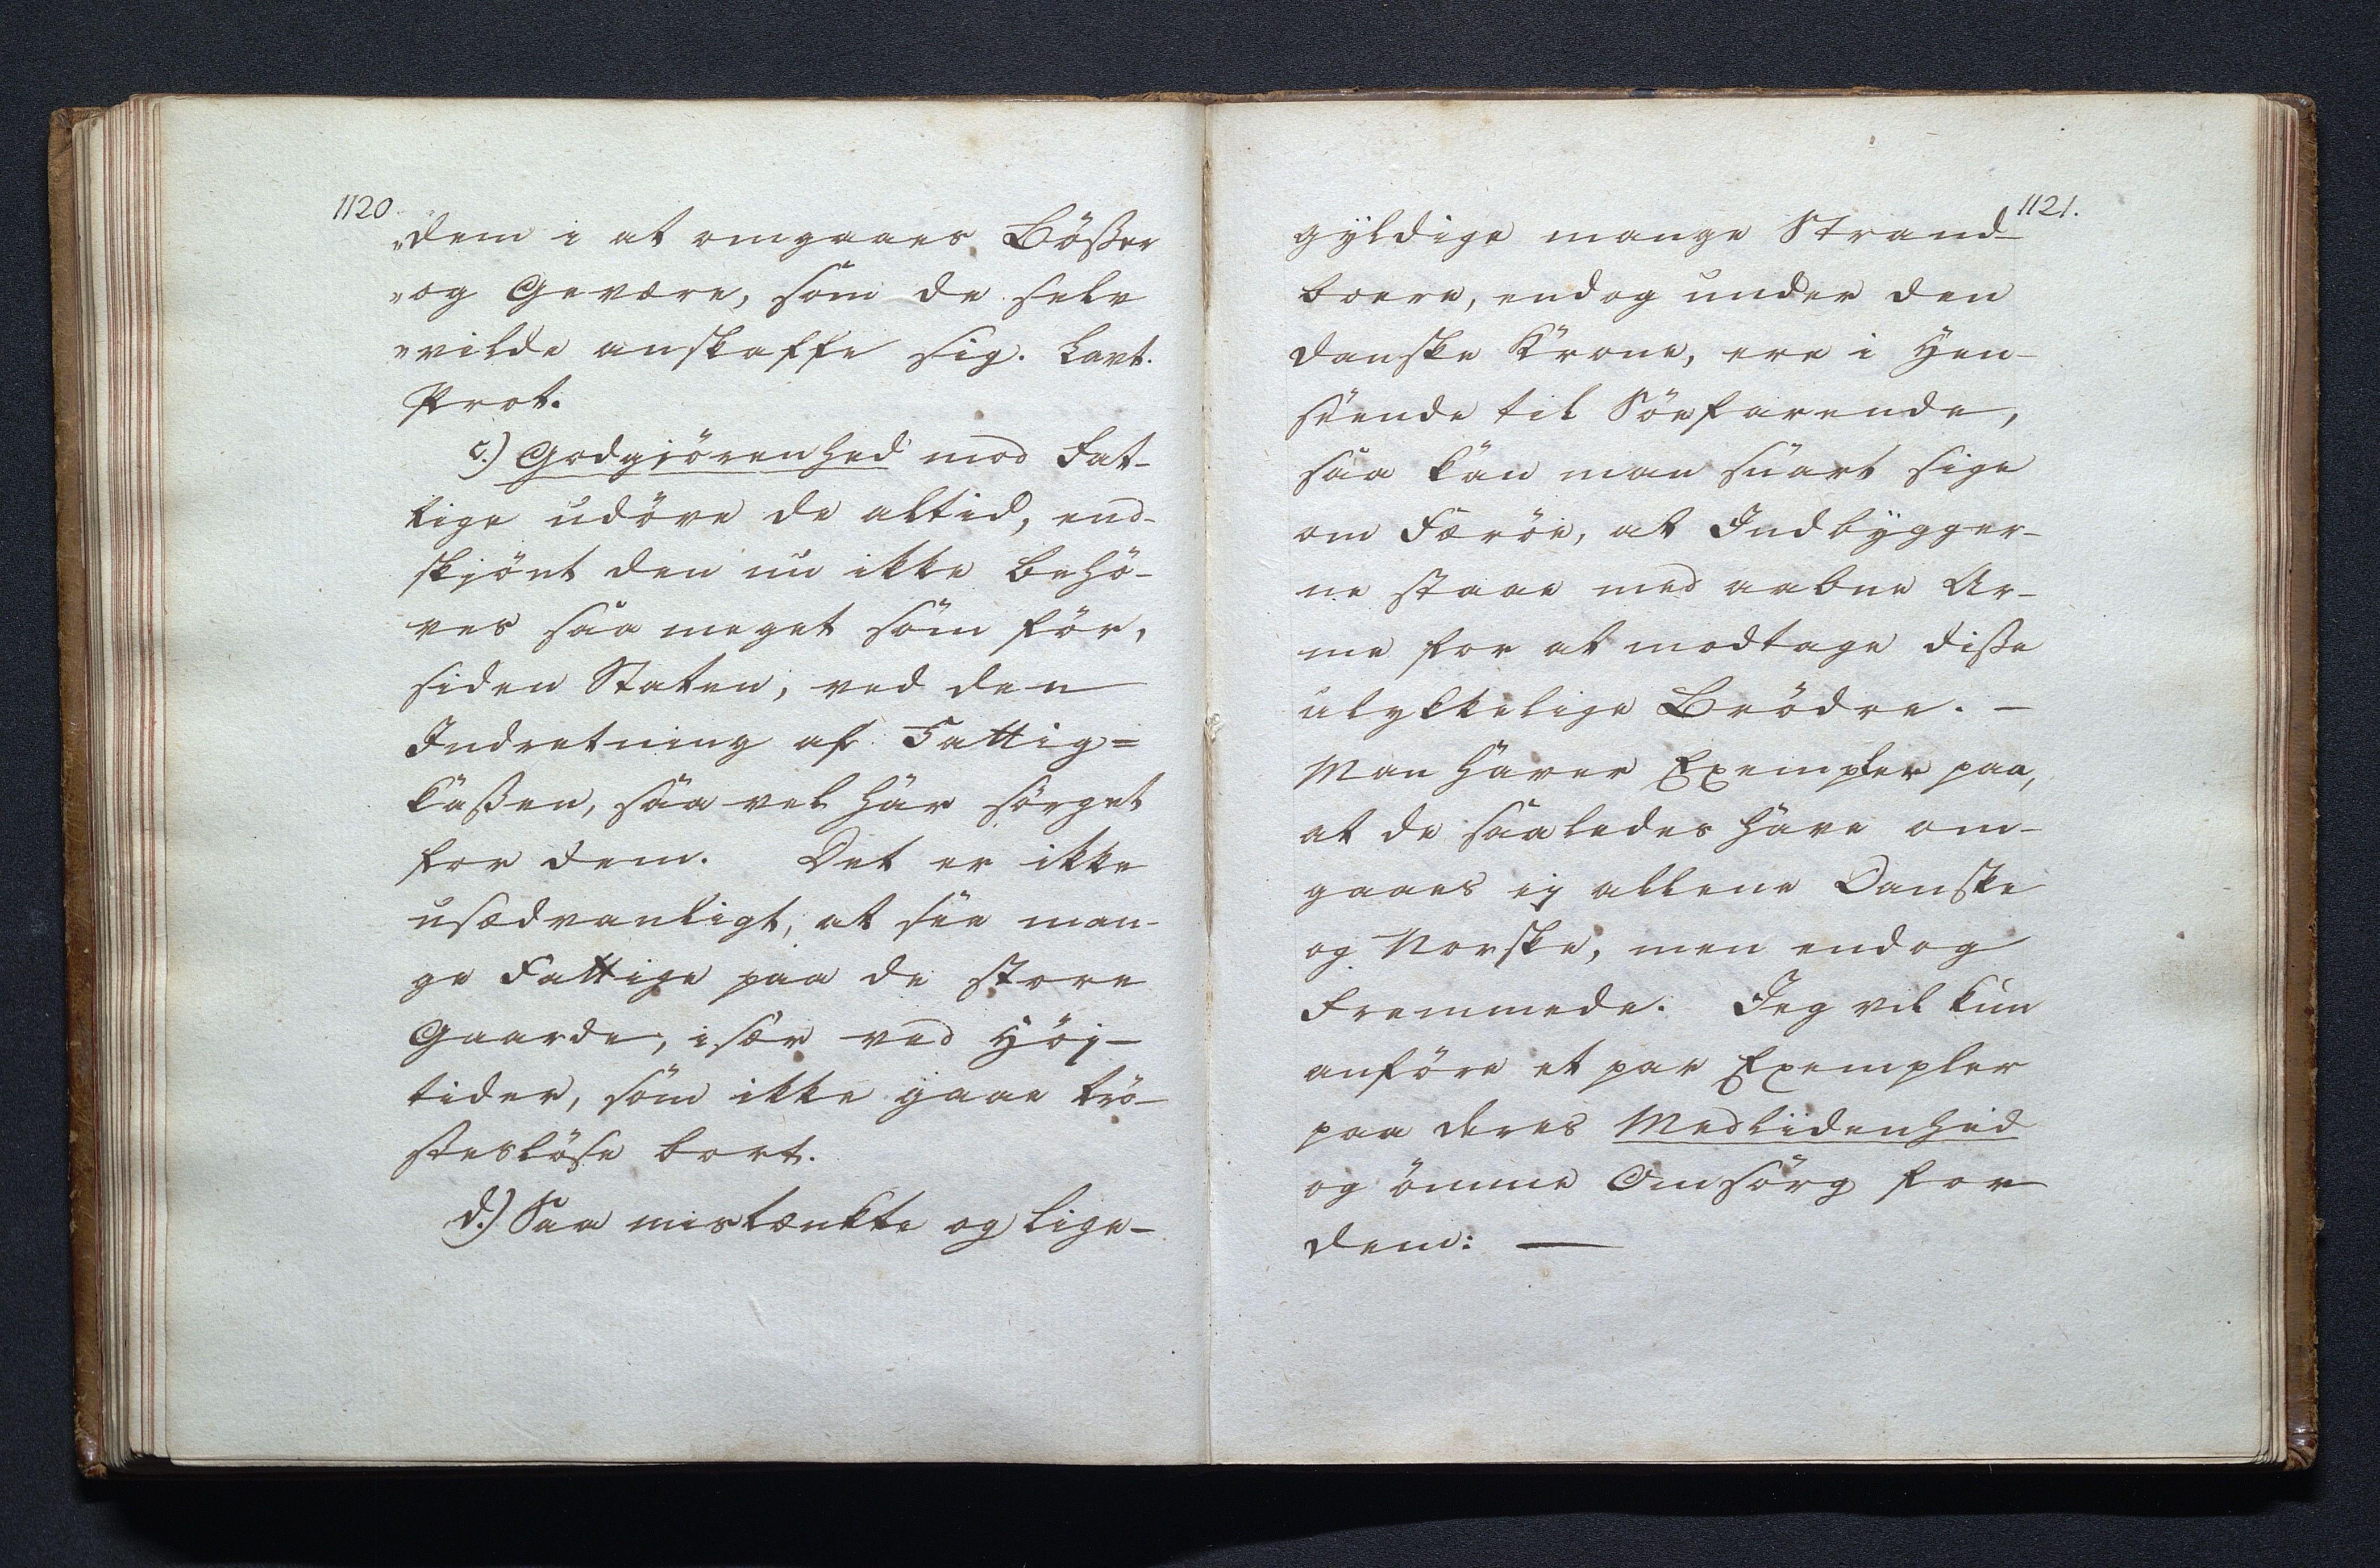 1120
„dem i at omgaaes Bößer
„og Gevære, som de selv
„vilde anskaffe sig. Lavt.
Prot.
c.) Godgiörenhed mod Fat-
tige udöve de altid, end-
skjönt den nu ikke behö-
ves saa meget som för,
siden Staten, ved den
Indretning af Fattig=
kaßen, saa vel har sörget
for dem. Det er ikke
usædvanligt, at see man-
ge Fattige paa de store
Gaarde, især ved Höj-
tider, som ikke gaae trö-
steslöse bort.
d.) Saa mistænkte og lige-
1121.
gyldige mange Strand-
boere, endog under den
danske Krone, ere i Hen-
seende til Söefarende,
saa kan man snart sige
om Færöe, at Indbygger-
ne staae med aabne Ar-
me for at modtage diße
ulykkelige Brödre. -
Man haver Exempler paa,
at de saaledes have om-
gaaes ej allene Danske
og Norske, men endog
Fremmede. Jeg vil kun
anföre et par Exempler
paa deres Medlidenhed
og ömme Omsorg for
dem: —